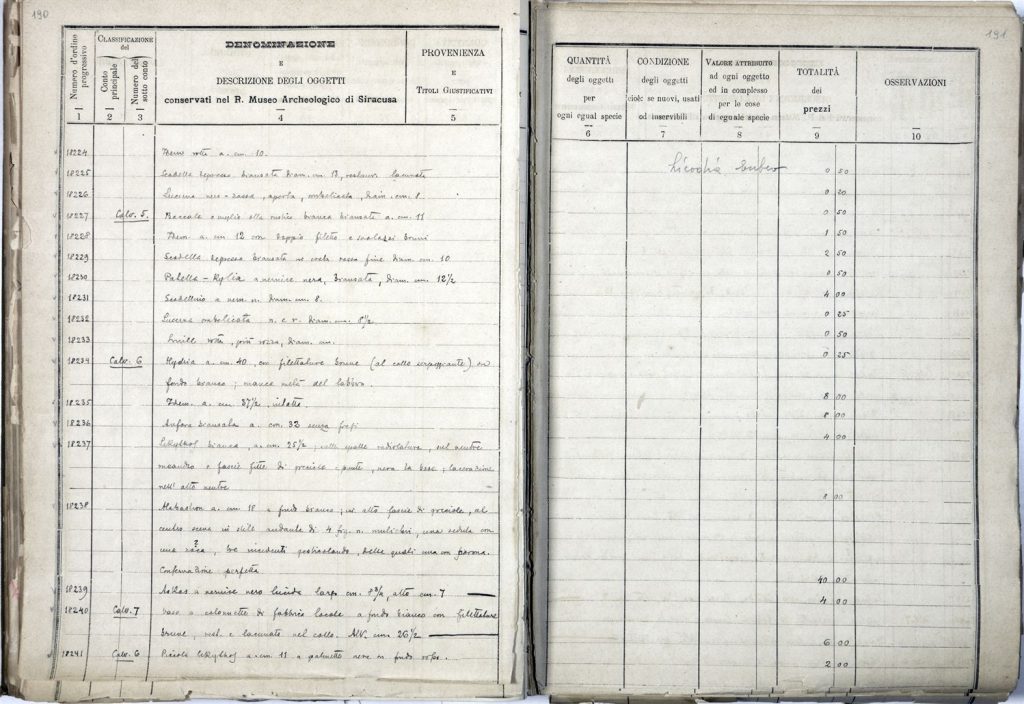 190
Numero d'ordine progressivo
CLASSIFICAZIONE
del
Conto principale
Numero del sotto conto
DENOMINAZIONE
E
DESCRIZIONE DEGLI OGGETTI
conservati nel R. Museo Archeologico di Siracusa
PROVENIENZA
E
TITOLI GIUSTIFICATIVI
1 2 3 4 5
18224 Idem rotta a. cm. 10.
18225 Scodella depressa brausata diam. cm. 13, restauri lacunata
18226 Lucerna nero-rossa, aperta, ombelicata, diam. cm. 8.
18227 Calv. 5. Boccale a cm. 11
18228 Idem. a. cm. 12 con doppio filetto e bruni
18229 Scodella depressa brausata rossa fine diam. cm. 10
18230 Patella-Kylix a vernice nera, brausata, diam. cm. 12½
18231 Scodellino a vern. n. diam. cm. 8.
18232 Lucerna ombelicata n. e r. diam. cm. 8½
18233 rotta, rozza, diam. cm.
18234 Calv. 6 Hydria a. cm. 40, con filettature brune (al collo serpeggiante) su
fondo bianco; manca metà del labbro.
18235 Idem. a. cm. 37½.
18236 Anfora brausata a. cm. 32 senza fregi
18237 Lekythos bianca, a. cm. 25½; sulle spalle radiolature, sul ventre
meandro e fascie fitte di , nera la base; lacerazione
nell'alto ventre
18238 Alabastron a. cm. 18 a fondo bianco; in alto fascia di , al
centro scena in stile andante di 4 fig. n. muliebri, una seduta con
una ?, tre incedenti , delle quali una con
Conservazione perfetta
18239 Askos a vernice nera lucida largo cm. 8¾, alto cm. 7
18240 Calv. 7 Vaso a colonnette di fabbrica locale a fondo bianco con filettature
brune, rest. e lacunato nel collo. Alt. cm. 26½
18241 Calv. 6 Piccola lekythos a. cm. 11 a palmette nere su fondo rosso.
191
QUANTITÀ
degli oggetti
per
ogni egual specie
CONDIZIONE
degli oggetti
cioè: se nuovi, usati
od inservibili
VALORE ATTRIBUITO
ad ogni oggetto
ed in complesso
per le cose
di eguale specie
TOTALITÀ
dei
prezzi
OSSERVAZIONI
6 7 8 9 10
Licodia Eubea
0 50
0 20
0 50
1 50
2 50
0 50
4 00
0 25
0 50
0 25
8 00
8 00
4 00
8 00
40 00
4 00
6 00
2 00